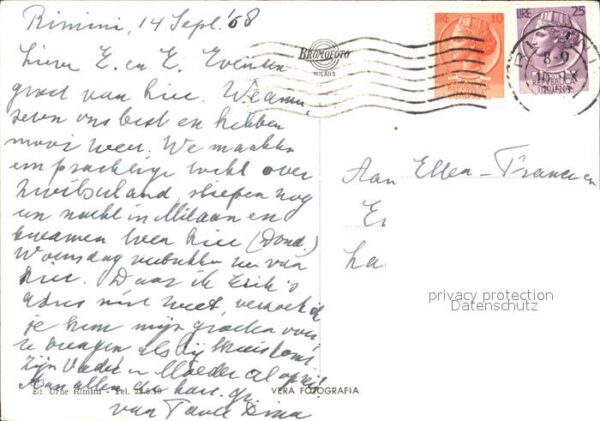 Rimini, 14 Sept. '68
Lieve E. en E. Even een
groet van hier. We amu-
seren ons best en hebben
mooi weer. We maakten
een prachtige tocht over
Zwitserland, sliepen nog
een nacht in Milaan en
kwamen toen hier (Dond.)
Woensdag vertrekken we van
hier. Daar ik Erik's
adres niet weet, verzoek ik
je hem mijn groeten over
te brengen als hij thuis komt
Zijn Vader en Moeder
Aan allen de hart. gr.
van Tante Dina
Ed. Urbe Rimini - Tel.
BROMOFOTO
MILANO
LIRE 10
LIRE 25
8-9
Aan Ellen - Francien
E
La
privacy protection
Datenschutz
VERA FOTOGRAFIA